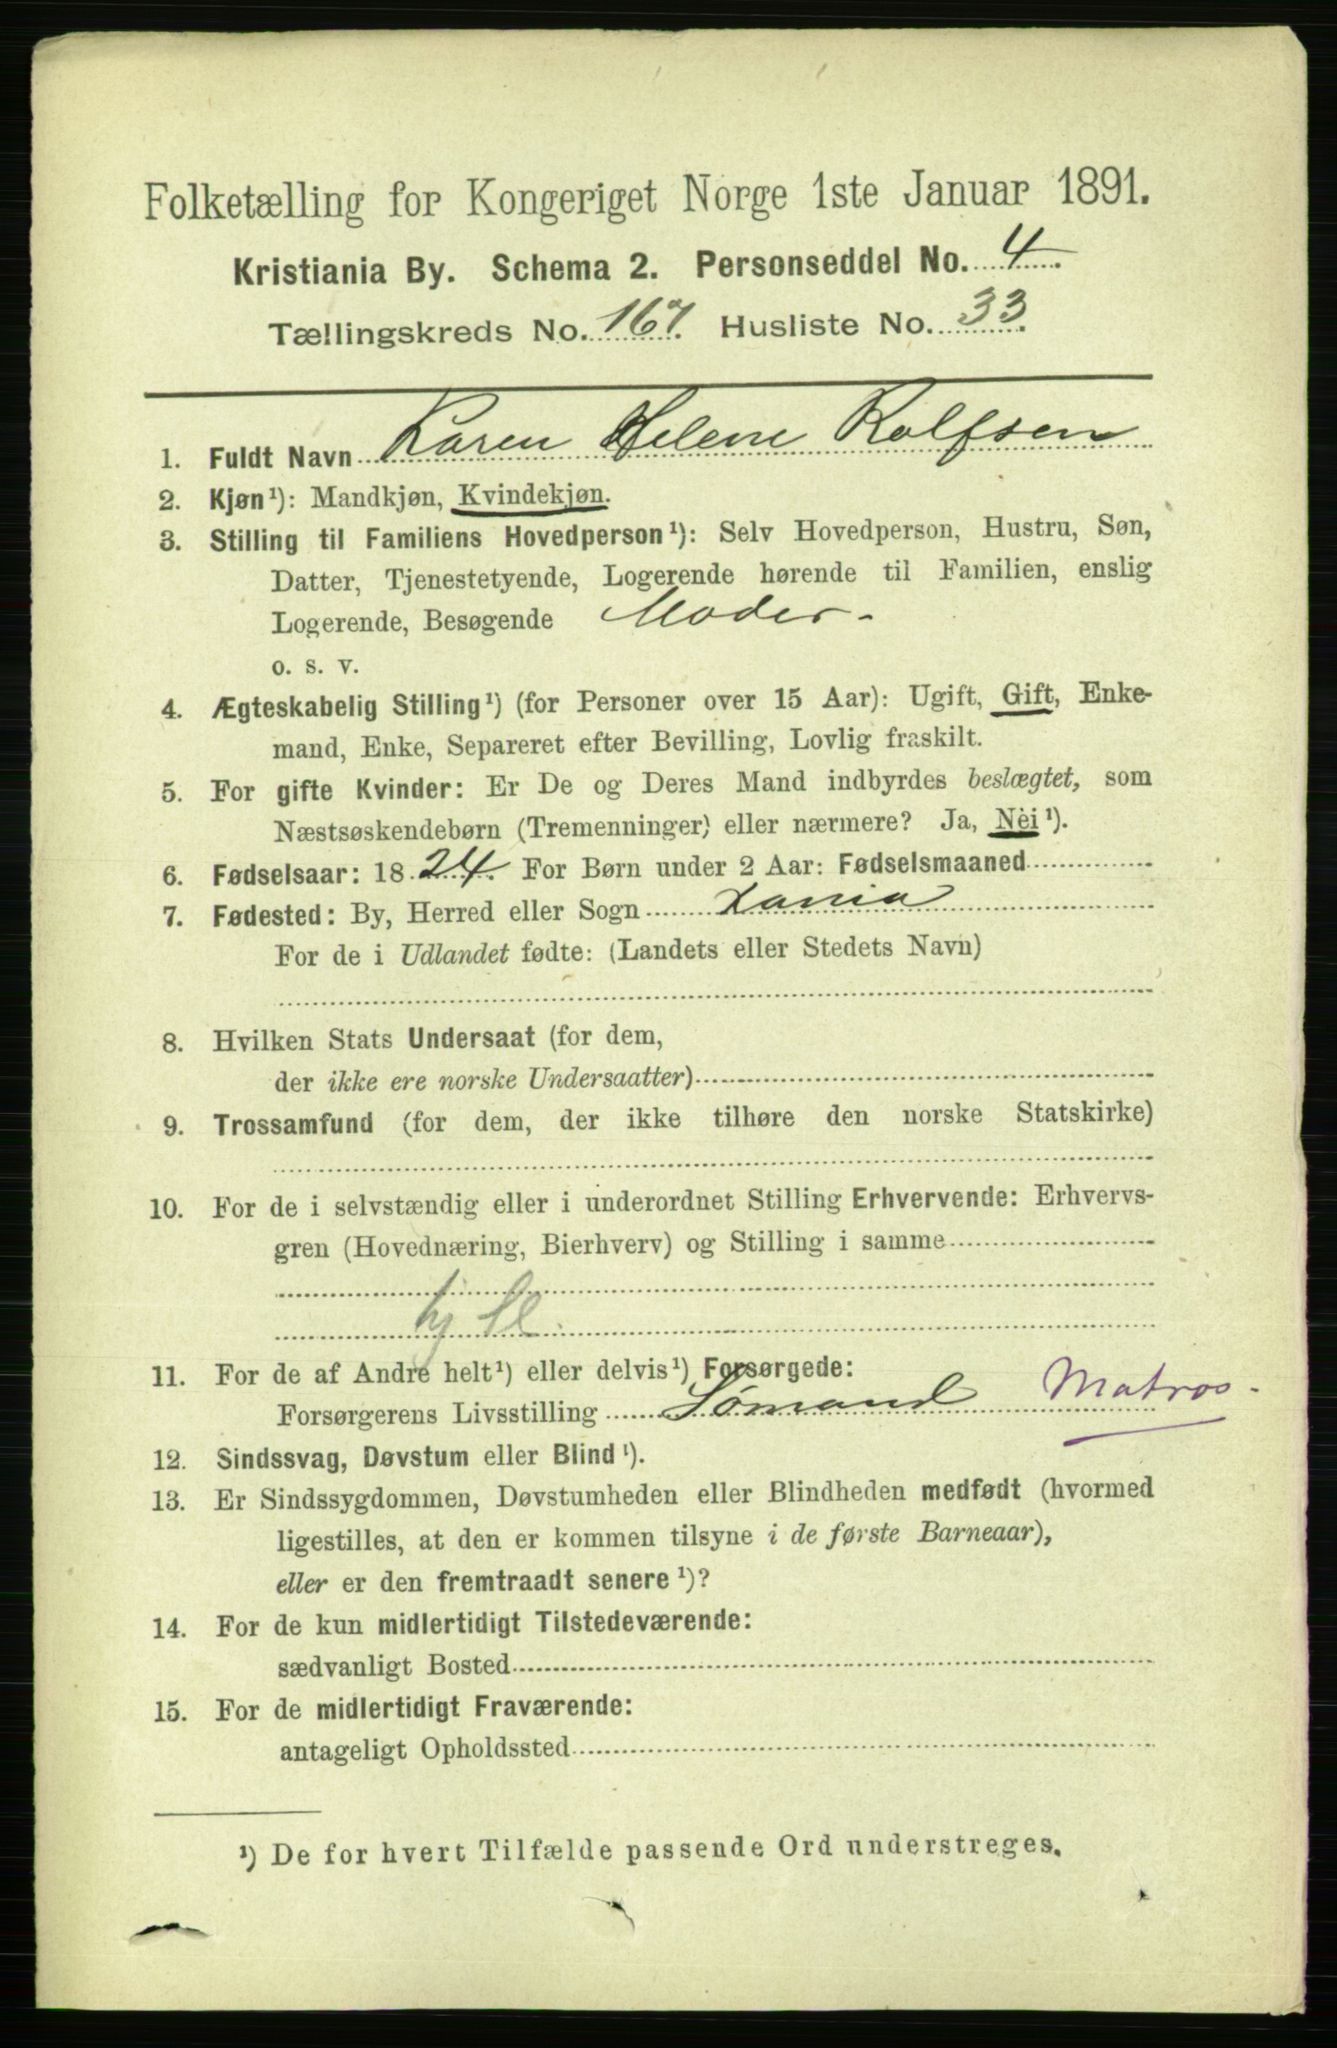 Folketælling for Kongeriget Norge 1ste Januar 1891.
Kristiania By. Schema 2. Personseddel No. 4
Tællingskreds No. 167. Husliste No. 33
1. Fuldt Navn Karen Helene Rolfsen
2. Kjøn¹): Mandkjøn, Kvindekjøn.
3. Stilling til Familiens Hovedperson¹): Selv Hovedperson, Hustru, Søn,
Datter, Tjenestetyende, Logerende hørende til Familien, enslig
Logerende, Besøgende Moder -
o. s. v.
4. Ægteskabelig Stilling¹) (for Personer over 15 Aar): Ugift, Gift, Enke-
mand, Enke, Separeret efter Bevilling, Lovlig fraskilt.
5. For gifte Kvinder: Er De og Deres Mand indbyrdes beslægtet, som
Næstsøskendebørn (Tremenninger) eller nærmere? Ja, Nei¹).
6. Fødselsaar: 1824. For Børn under 2 Aar: Fødselsmaaned
7. Fødested: By, Herred eller Sogn Xania
For de i Udlandet fødte: (Landets eller Stedets Navn)
8. Hvilken Stats Undersaat (for dem,
der ikke ere norske Undersaatter)
9. Trossamfund (for dem, der ikke tilhøre den norske Statskirke)
10. For de i selvstændig eller i underordnet Stilling Erhvervende: Erhvervs-
gren (Hovednæring, Bierhverv) og Stilling i samme
11. For de af Andre helt¹) eller delvis¹) Forsørgede:
Forsørgerens Livsstilling Sømand Matros -
12. Sindssvag, Døvstum eller Blind¹).
13. Er Sindssygdommen, Døvstumheden eller Blindheden medfødt (hvormed
ligestilles, at den er kommen tilsyne i de første Barneaar),
eller er den fremtraadt senere¹)?
14. For de kun midlertidigt Tilstedeværende:
sædvanligt Bosted
15. For de midlertidigt Fraværende:
antageligt Opholdssted
¹) De for hvert Tilfælde passende Ord understreges.